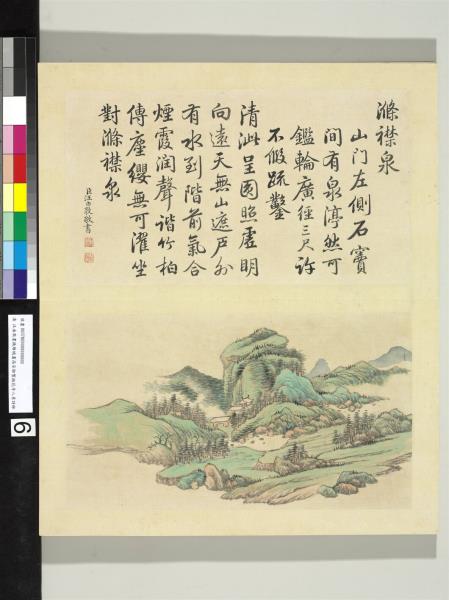 滌襟泉
山門左側石竇
間有泉渟然可
鑑輪廣徑三尺許
不假疏鑿
清泚呈圓照虛明
向遠天無山遮戶外
有水到階前氣合
煙霞潤聲諧竹柏
傳塵纓無可濯坐
對滌襟泉
臣汪由敦敬書
6